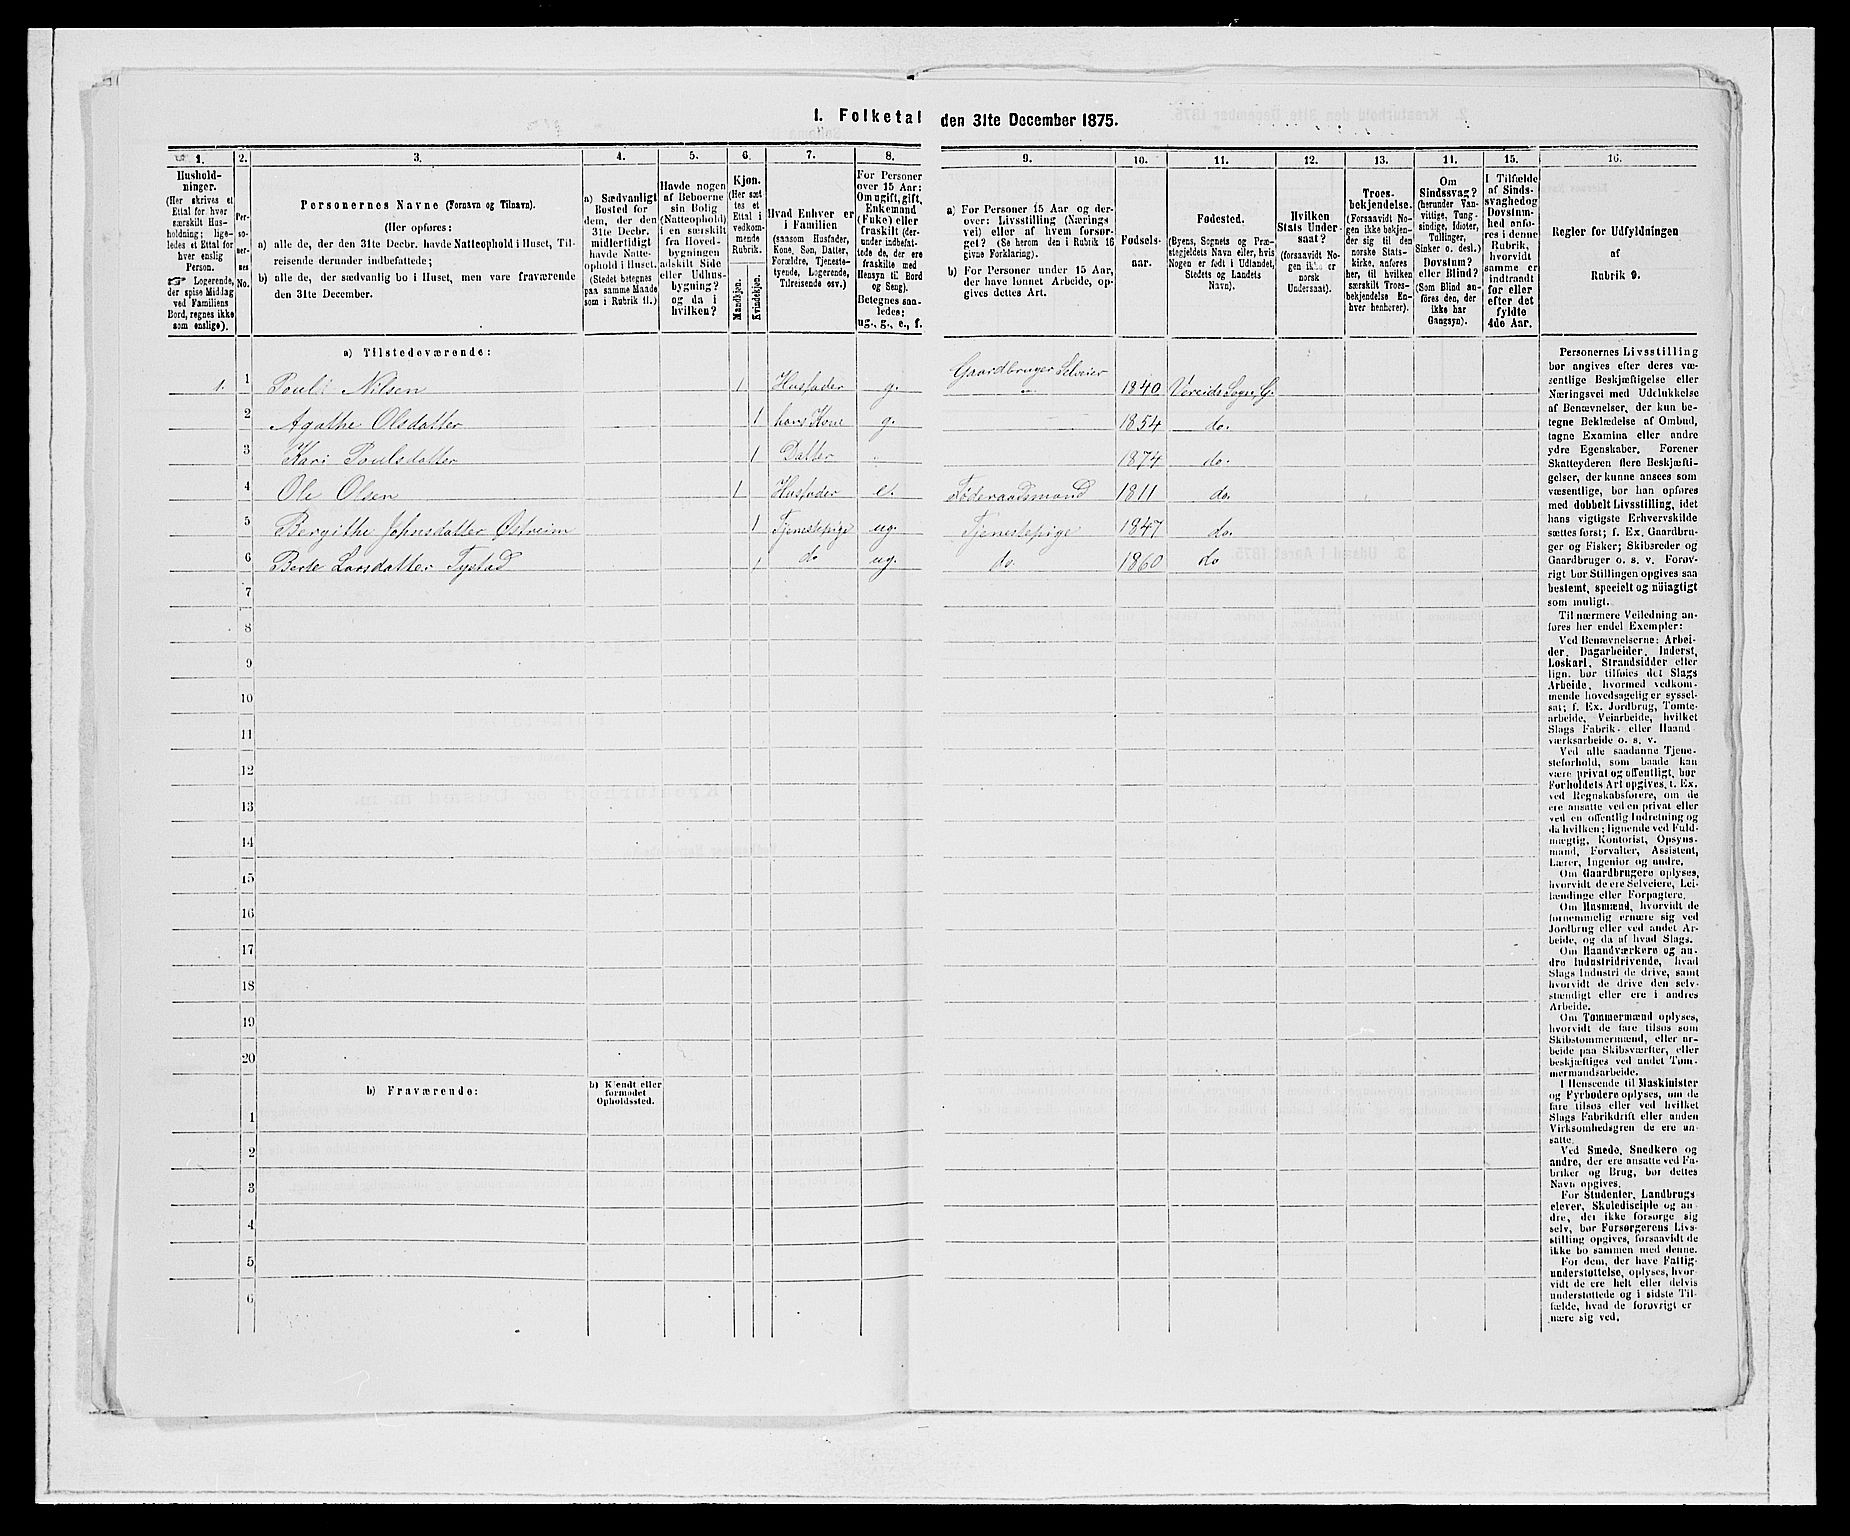 1. Folketal den 31te December 1875.
1. 2. 3. 4. 5. 6. 7. 8. 9. 10. 11. 12. 13. 14. 15. 16.
Hushold-
ninger.
(Her skrives et
Ettal for hver
særskilt Hus-
holdning; lige-
ledes et Ettal for
hver enslig
Person.
☞ Logerende,
der spise Middag
ved Familiens
Bord, regnes ikke
som enslige).
Per-
so-
ner-
nes
No.
Personernes Navne (Fornavn og Tilnavn).
(Her opføres:
a) alle de, der den 31te Decbr. havde Natteophold i Huset, Til-
reisende derunder indbefattede;
b) alle de, der sædvanlig bo i Huset, men vare fraværende
den 31te December.
a) Sædvanligt
Bosted for
dem, der den
31te Decbr.
midlertidigt
havde Natte-
ophold i Huset.
(Stedet betegnes
paa samme Maade
som i Rubrik 11.)
Havde nogen
af Beboerne
sin Bolig
(Natteophold)
i en særskilt
fra Hoved-
bygningen
adskilt Side
eller Udhus-
bygning?
og da i
hvilken?
Kjøn.
(Her sæt-
tes et
Ettal i
vedkom-
mende
Rubrik.
Mandkjøn.
Kvindekjøn.
Hvad Enhver er
i Familien
(saasom Husfader,
Kone, Søn, Datter,
Forældre, Tjeneste-
tyende, Logerende,
Tilreisende osv.)
For Personer
over 15 Aar:
Om ugift, gift,
Enkemand
(Enke) eller
fraskilt (der-
under indbefat-
tede de, der ere
fraskilte med
Hensyn til Bord
og Seng).
Betegnes saa-
ledes:
ug., g., e., f.
a) For Personer 15 Aar og der-
over: Livsstilling (Nærings
vei) eller af hvem forsør-
get? (Se herom den i Rubrik 16
givne Forklaring).
b) For Personer under 15 Aar,
der have lønnet Arbeide, op-
gives dettes Art.
Fødsels-
aar.
Fødested.
(Byens, Sognets og Præ-
stegjeldets Navn eller, hvis
Nogen er født i Udlandet,
Stedets og Landets
Navn).
Hvilken
Stats Under-
saat?
(forsaavidt No-
gen ikke er
norsk
Undersaat).
Troes-
bekjendelse.
(Forsaavidt No-
gen ikke bekjen-
der sig til den
norske Stats-
kirke, anføres
her, til hvilken
særskilt Troes-
bekjendelse En-
hver henhører).
Om
Sindssvag?
(herunder Van-
vittige, Tung-
sindige, Idioter,
Tullinger,
Sinker o. desl.)
Døvstum?
eller Blind?
(Som Blind an-
føres den, der
ikke har
Gangsyn).
I Tilfælde
af Sinds-
svaghed og
Døvstum-
hed anfø-
res i denne
Rubrik,
hvorvidt
samme er
indtraadt
før eller
efter det
fyldte
4de Aar.
Regler for Udfyldningen
af
Rubrik 9.
a) Tilstedeværende:
1. 1 Poul Nilsen 1 Husfader g. Gaardbruger Selveier 1840 Vereids Sogn, G.
2 Agathe Olsdatter 1 hans Kone g. 1854 do.
3 Kari Poulsdatter 1 Datter 1874 do.
4 Ole Olsen 1 Husfader e. Føderaadsmand 1811 do.
5 Bergithe Johnsdatter Østreim 1 Tjenestepige ug. Tjenestepige 1847 do.
6 Berte Larsdatter Tystad 1 do ug. do. 1860 do
7
8
9
10
11
12
13
14
15
16
17
18
19
20
b) Fraværende:
b) Kjendt eller
formodet
Opholdssted.
1
2
3
4
5
6
Personernes Livsstilling
bør angives efter deres væ-
sentlige Beskjæftigelse eller
Næringsvei med Udelukkelse
af Benævnelser, der kun be-
tegne Beklædelse af Ombud,
tagne Examina eller andre
ydre Egenskaber. Forener
Skatteyderen flere Beskjæfti-
gelser, der kunne ansees som
væsentlige, bør han opføres
med dobbelt Livsstilling, idet
hans vigtigste Erhvervskilde
sættes først; f. Ex. Gaardbru-
ger og Fisker; Skibsreder og
Gaardbruger o. s. v. Forøv-
rigt bør Stillingen opgives saa
bestemt, specielt og nøiagtigt
som muligt.
Til nærmere Veiledning an-
føres her endel Exempler:
Ved Benævnelserne: Arbei-
der, Dagarbeider, Inderst,
Løskarl, Strandsidder eller
lign. bør tilføies det Slags
Arbeide, hvormed vedkom-
mende hovedsagelig er syssel-
sat; f. Ex. Jordbrug, Tomte-
arbeide, Veiarbeide, hvilket
Slags Fabrik- eller Haand-
værksarbeide o. s. v.
Ved alle saadanne Tjene-
steforhold, som baade kan
være privat og offentligt, bør
Forholdets Art opgives, f. Ex.
ved Regnskabsførere, om de
ere ansatte ved en privat eller
ved en offentlig Indretning og
da hvilken; lignende ved Fuld-
mægtig, Kontorist, Opsyns-
mand, Forvalter, Assistent,
Lærer, Ingeniør og andre.
Om Gaardbrugere oplyses,
hvorvidt de ere Selveiere, Lei-
lændinge eller Forpagtere.
Om Husmænd, hvorvidt de
fornemmelig ernære sig ved
Jordbrug eller ved andet Ar-
beide, og da af hvad Slags.
Om Haandværkere og an-
dre Industridrivende, hvad
Slags Industri de drive, samt
hvorvidt de drive den selv-
stændigt eller ere i andres
Arbeide.
Om Tømmermænd oplyses,
hvorvidt de fare tilsøs som
Skibstømmermænd, eller ar-
beide paa Skibsværfter, eller
beskjæftiges ved andet Tøm-
mermandsarbeide.
I Henseende til Maskinister
og Fyrbødere oplyses, om de
fare tilsøs eller ved hvilket
Slags Fabrikdrift eller anden
Virksomhedsgren de ere an-
satte.
Ved Smede, Snedkere og
andre, der ere ansatte ved Fa-
briker og Brug, bør dettes
Navn opgives.
For Studenter, Landbrugs-
elever, Skoledisciple og an-
dre, der ikke forsørge sig
selv, bør Forsørgerens Livs-
stilling opgives, forsaavidt de
ikke bo sammen med denne.
For dem, der have Fattig-
understøttelse, oplyses, hvor-
vidt de ere helt eller delvis
understøttede og i sidste Til-
fælde, hvad de forøvrigt er-
nære sig ved.